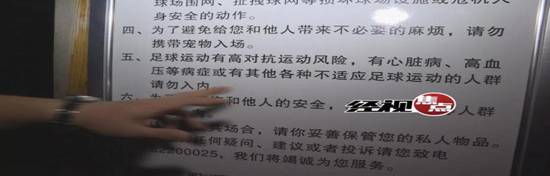 球场围网、扯拽球网等损坏球场设施或危机人
身安全的动作。
四、为了避免给您和他人带来不必要的麻烦，请勿
携带宠物入场。
五、足球运动有高对抗运动风险，有心脏病、高血
压等病症或有其他各种不适应足球运动的人群
请勿入内
六、为 和他人的安全， 人群
经视焦点
共场合，请你妥善保管您的私人物品。
任何疑问、建议或者投诉请您致电
2200025，我们将竭诚为您服务。